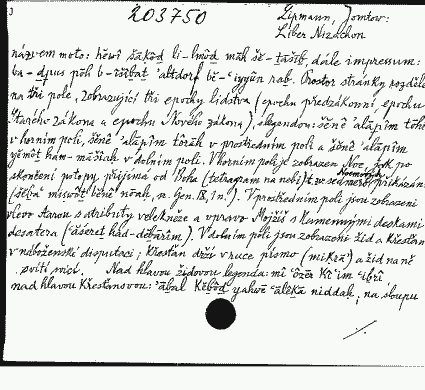 J
203750
Lipmann, Jomtow:
Liber Nizachon
názvem moto: hěwî šāḳōd li-lmōd māh še-tāšīb, dále impressum:
ba-dpus pōh b-ištibat 'altdorf bě-'iyyūn rab. Prostor stránky rozděle
na tři pole, zobrazující tři epochy lidstva (epochu předzákonní, epochu
Starého zákona a epochu Nového zákona), s legendou: šěnē 'alāpīm tōhū
v horním poli, šěnē 'alāpīm tōrāh v prostředním poli a šěnē 'alāpīm
yěmōt ham-māšiaḥ v dolním poli. V horním poli je zobrazen Noe, jak po
skončení potopy přijímá od Boha (tetragram na nebi) t.zv. sedmero Noemových přikázání
(šeba' miswōt běnē nōah, n. Gen. IX, 1n.). V prostředním poli jsou zobrazeni
vlevo Aaron s atributy velekněze a vpravo Mojžíš s kamennými deskami
desatera ('ăśeret had-dēbārīm). V dolním poli jsou zobrazeni žid a křesťan
v náboženské disputaci; křesťan drží v ruce písmo (miḳrā) a žid na ně
svítí svící. Nad hlavou židovou legenda: mī 'ōzēr kī 'im 'ibrī,
nad hlavou křesťanovou: 'ăbal kěbōd yahwē 'ālēkā niddaḥ, na sloupu